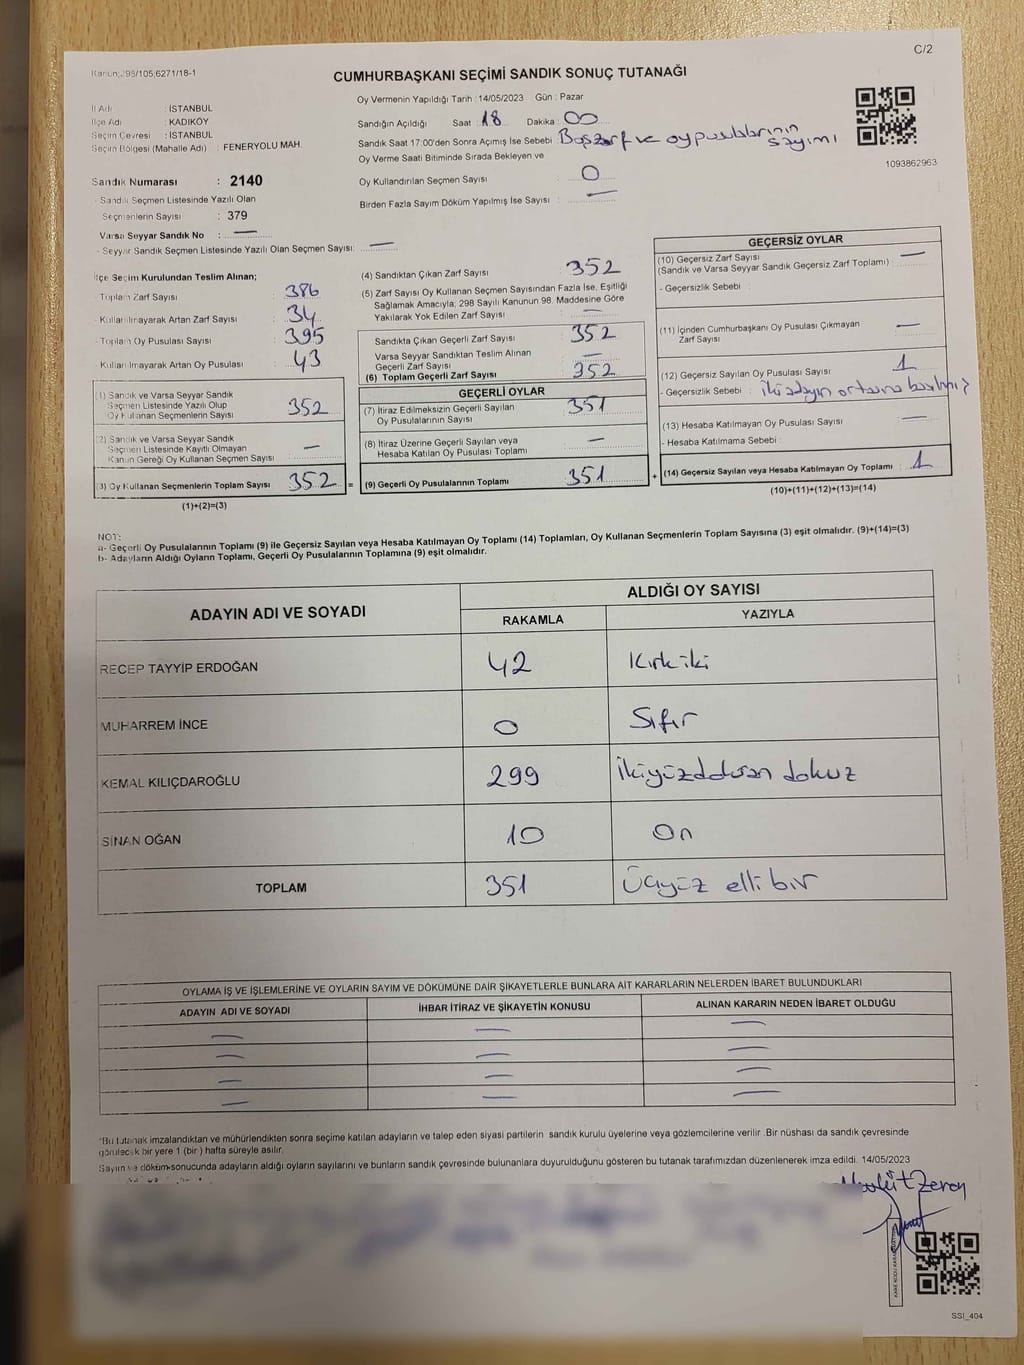 C/2
Kanun;298/105;6271/18-1
CUMHURBAŞKANI SEÇİMİ SANDIK SONUÇ TUTANAĞI
İl Adı : İSTANBUL
İlçe Adı : KADIKÖY
Seçim Çevresi : İSTANBUL
Seçim Bölgesi (Mahalle Adı) : FENERYOLU MAH.
Sandık Numarası : 2140
- Sandık Seçmen Listesinde Yazılı Olan
Seçmenlerin Sayısı : 379
Varsa Seyyar Sandık No : —
- Seyyar Sandık Seçmen Listesinde Yazılı Olan Seçmen Sayısı: —
Oy Vermenin Yapıldığı Tarih : 14/05/2023 Gün : Pazar
Sandığın Açıldığı Saat 18 Dakika : 00
Sandık Saat 17:00'den Sonra Açımış İse Sebebi : Boş zarf ve oy pusulalarının sayımı
Oy Verme Saati Bitiminde Sırada Bekleyen ve
Oy Kullandırılan Seçmen Sayısı : 0
Birden Fazla Sayım Döküm Yapılmış İse Sayısı : —
1093862963
İlçe Seçim Kurulundan Teslim Alınan;
- Toplam Zarf Sayısı : 386
- Kullanılmayarak Artan Zarf Sayısı : 34
- Toplam Oy Pusulası Sayısı : 395
- Kullanılmayarak Artan Oy Pusulası : 43
(1) Sandık ve Varsa Seyyar Sandık
Seçmen Listesinde Yazılı Olup
Oy Kullanan Seçmenlerin Sayısı : 352
(2) Sandık ve Varsa Seyyar Sandık
Seçmen Listesinde Kayıtlı Olmayan
Kanun Gereği Oy Kullanan Seçmen Sayısı : —
(3) Oy Kullanan Seçmenlerin Toplam Sayısı : 352 =
(1)+(2)=(3)
(4) Sandıktan Çıkan Zarf Sayısı : 352
(5) Zarf Sayısı Oy Kullanan Seçmen Sayısından Fazla İse, Eşitliği
Sağlamak Amacıyla; 298 Sayılı Kanunun 98. Maddesine Göre
Yakılarak Yok Edilen Zarf Sayısı : —
Sandıkta Çıkan Geçerli Zarf Sayısı : 352
Varsa Seyyar Sandıktan Teslim Alınan
Geçerli Zarf Sayısı : —
(6) Toplam Geçerli Zarf Sayısı : 352
GEÇERLİ OYLAR
(7) İtiraz Edilmeksizin Geçerli Sayılan
Oy Pusulalarının Sayısı : 351
(8) İtiraz Üzerine Geçerli Sayılan veya
Hesaba Katılan Oy Pusulası Toplamı : —
(9) Geçerli Oy Pusulalarının Toplamı : 351 +
GEÇERSİZ OYLAR
(10) Geçersiz Zarf Sayısı
(Sandık ve Varsa Seyyar Sandık Geçersiz Zarf Toplamı) : —
- Geçersizlik Sebebi :
(11) İçinden Cumhurbaşkanı Oy Pusulası Çıkmayan
Zarf Sayısı : —
(12) Geçersiz Sayılan Oy Pusulası Sayısı : 1
- Geçersizlik Sebebi : iki adayın ortasına
(13) Hesaba Katılmayan Oy Pusulası Sayısı : —
- Hesaba Katılmama Sebebi :
(14) Geçersiz Sayılan veya Hesaba Katılmayan Oy Toplamı : 1
(10)+(11)+(12)+(13)=(14)
NOT:
a- Geçerli Oy Pusulalarının Toplamı (9) ile Geçersiz Sayılan veya Hesaba Katılmayan Oy Toplamı (14) Toplamları, Oy Kullanan Seçmenlerin Toplam Sayısına (3) eşit olmalıdır. (9)+(14)=(3)
b- Adayların Aldığı Oyların Toplamı, Geçerli Oy Pusulalarının Toplamına (9) eşit olmalıdır.
ADAYIN ADI VE SOYADI ALDIĞI OY SAYISI
RAKAMLA YAZIYLA
RECEP TAYYİP ERDOĞAN 42 Kırkiki
MUHARREM İNCE 0 Sıfır
KEMAL KILIÇDAROĞLU 299 İkiyüzdoksan dokuz
SİNAN OĞAN 10 On
TOPLAM 351 Üçyüz elli bir
OYLAMA İŞ VE İŞLEMLERİNE VE OYLARIN SAYIM VE DÖKÜMÜNE DAİR ŞİKAYETLERLE BUNLARA AİT KARARLARIN NELERDEN İBARET BULUNDUKLARI
ADAYIN ADI VE SOYADI İHBAR İTİRAZ VE ŞİKAYETİN KONUSU ALINAN KARARIN NEDEN İBARET OLDUĞU
— — —
— — —
— — —
— — —
*Bu tutanak imzalandıktan ve mühürlendikten sonra seçime katılan adayların ve talep eden siyasi partilerin sandık kurulu üyelerine veya gözlemcilerine verilir .Bir nüshası da sandık çevresinde
görülecek bir yere 1 (bir ) hafta süreyle asılır.
Sayım ve döküm sonucunda adayların aldığı oyların sayılarını ve bunların sandık çevresinde bulunanlara duyurulduğunu gösteren bu tutanak tarafımızdan düzenlenerek imza edildi. 14/05/2023
SSI_404